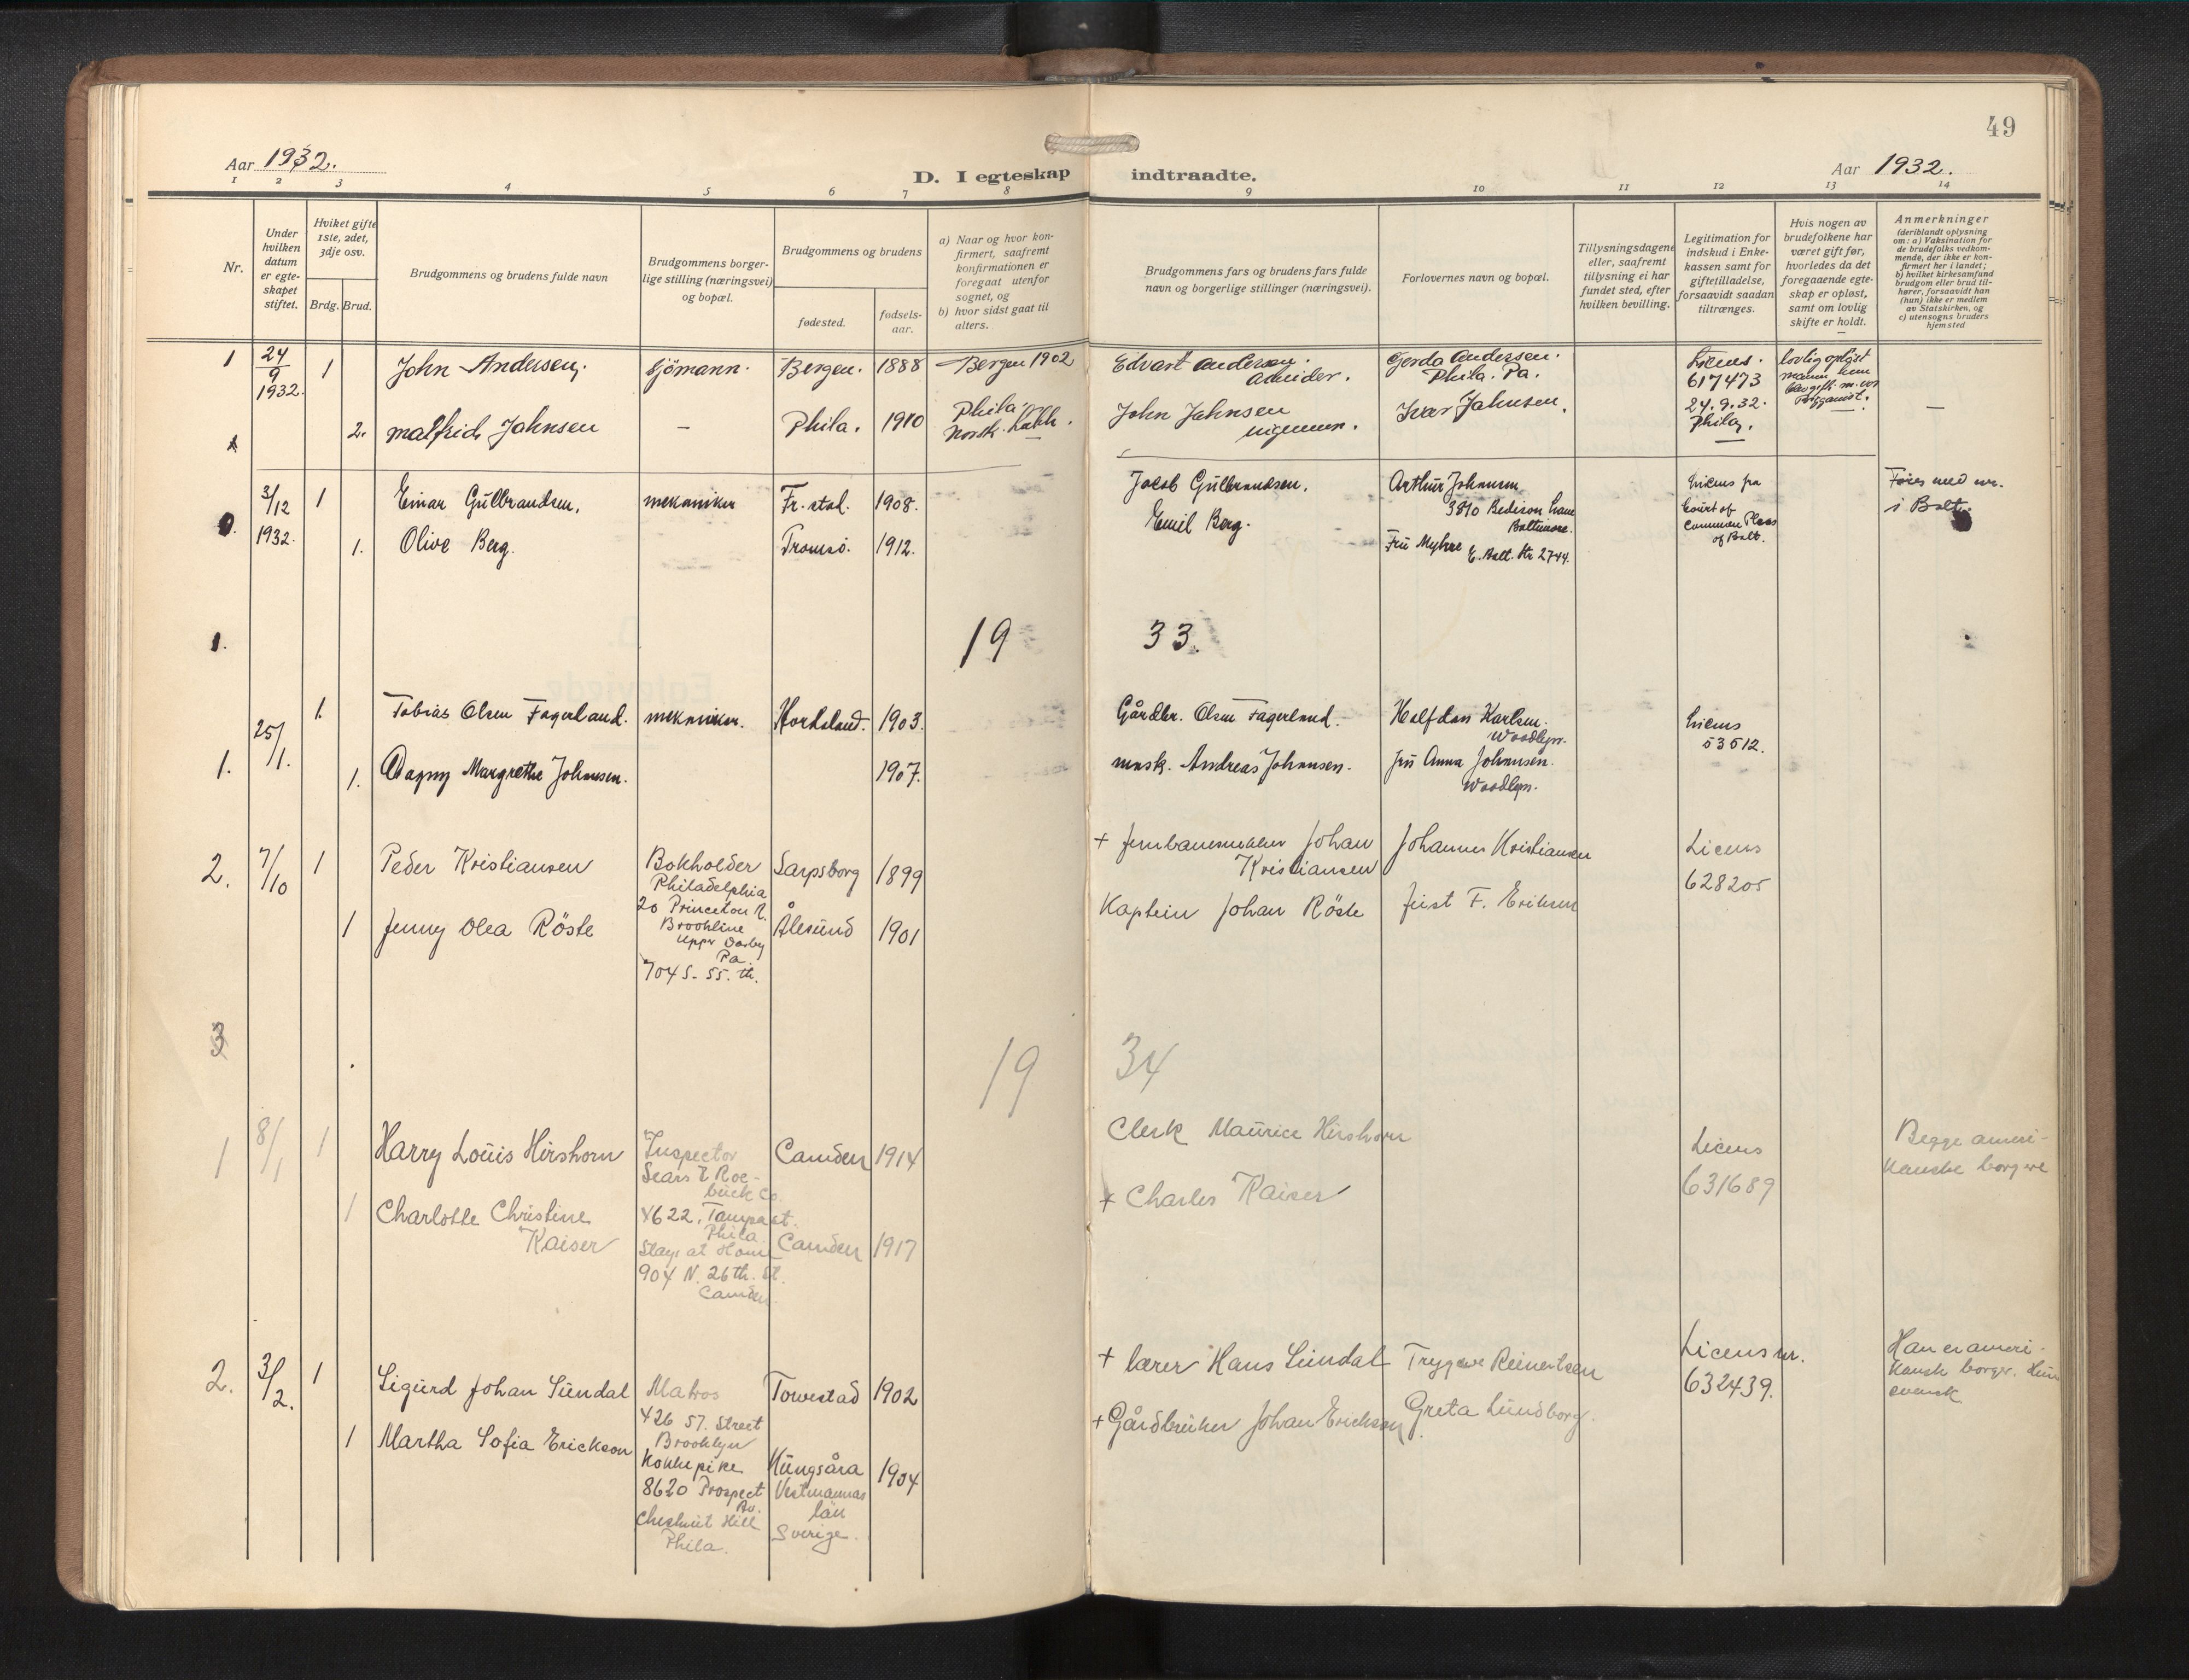 49
Aar 1932.
Aar 1932.
D. I egteskap indtraadte.
1 2 3 4 5 6 7 8 9 10 11 12 13 14
Nr.
Under hvilken datum er egte- skapet stiftet.
Hviket gifte 1ste, 2det, 3dje osv.
Brdg. Brud.
Brudgommens og brudens fulde navn
Brudgommens borger-
lige stilling (næringsvei)
og bopæl.
Brudgommens og brudens
fødested.
fødsels-
aar.
a) Naar og hvor kon-
firmert, saafremt
konfirmationen er
foregaat utenfor
sognet, og
b) hvor sidst gaat til
alters.
Brudgommens fars og brudens fars fulde
navn og borgerlige stillinger (næringsvei).
Forlovernes navn og bopæl.
Tillysningsdagene
eller, saafremt
tillysning ei har
fundet sted, efter
hvilken bevilling.
Legitimation for
indskud i Enke-
kassen samt for
giftetilladelse,
forsaavidt saadan
tiltrænges.
Hvis nogen av
brudefolkene har
været gift før,
hvorledes da det
foregaaende egte-
skap er opløst,
samt om lovlig
skifte er holdt.
Anmerkninger
(deriblandt oplysning
om: a) Vaksination for
de brudefolks vedkom-
mende, der ikke er kon-
firmert her i landet;
b) hvilket kirkesamfund
brudgom eller brud til-
hører, forsaavidt han
(hun) ikke er medlem
av Statskirken, og
c) utensogns bruders
hjemsted
1 24/9 1932. 1 John Andersen. Sjömann. Bergen. 1888 Bergen 1902
Edvart Andersen.
Arbeider.
Gerda Andersen.
Phila. Pa.
Licens.
617473
24.9.32.
Phila.
lovlig opløst
2. Malfrid Jahnsen — Phila. 1910 Phila.
Norsk
John Jahnsen
Ivar Jahnsen.
—
3/12 1932. 1 Einar Gulbrandsen. mekaniker Fr.stad. 1908.
Jacob Gulbrandsen.
Arthur Johnsen
3810
Baltimore.
Licens fra
Court of
Common Pleas
of Balt.
Føres med nr.
i Balt.
1. Olive Berg. Tromsö. 1912.
Emil Berg.
Fru Myhre E. Balt. Str. 2744.
1.
19 33.
1. 25/1. 1. Tobias Olsen Fagerland. mekaniker. 1903.
Gårdbr. Olsen Fagerland.
Halfdan Karlsen.
Woodlyn.
Licens
53512.
1. Dagny Margrethe Johnsen. 1907.
Andreas Johnsen.
fru Anna Johnsen.
Woodlyn.
2. 7/10 1 Peder Kristiansen Bokholder Sarpsborg 1899
Philadelphia
20 Princeton R.
Brookline
Upper Darby
Pa.
+ Johan
Kristiansen
Johannes Kristiansen
Licens
628205
1 Jenny Olea Röste 704 S. 55. th. Ålesund 1901
Kaptein Johan Röste
F. Eriksen
3
19 34
1 8/1 1 Harry Louis Hirshorn Inspector Camden 1914
Sears & Roe-
buck Co.
4622. Tampa st.
Phila.
Clerk Maurice Hirshorn
Licens
631689
Begge ameri-
kanske borgere
1 Charlotte Christine
Kaiser
Stays at Home
904 N. 26th. St.
Camden.
Camden 1917
+ Charles Kaiser
2. 3/2. 1 Sigurd Johan Sundal Matros 1902
426 57. Street
Brooklyn
+ lærer Hans Sundal
Trygve Reinertsen
Licens nr.
632439.
Han er ameri-
kansk borger. Hun
svensk
1 Martha Sofia Erickson Kokkepike
8620 Prospect
Av.
Chestnut Hill
Phila.
Kungsåra
Vestmannas
län
Sverige.
1904
+ Gårdbruker Johan Erickson
Greta Lundborg.